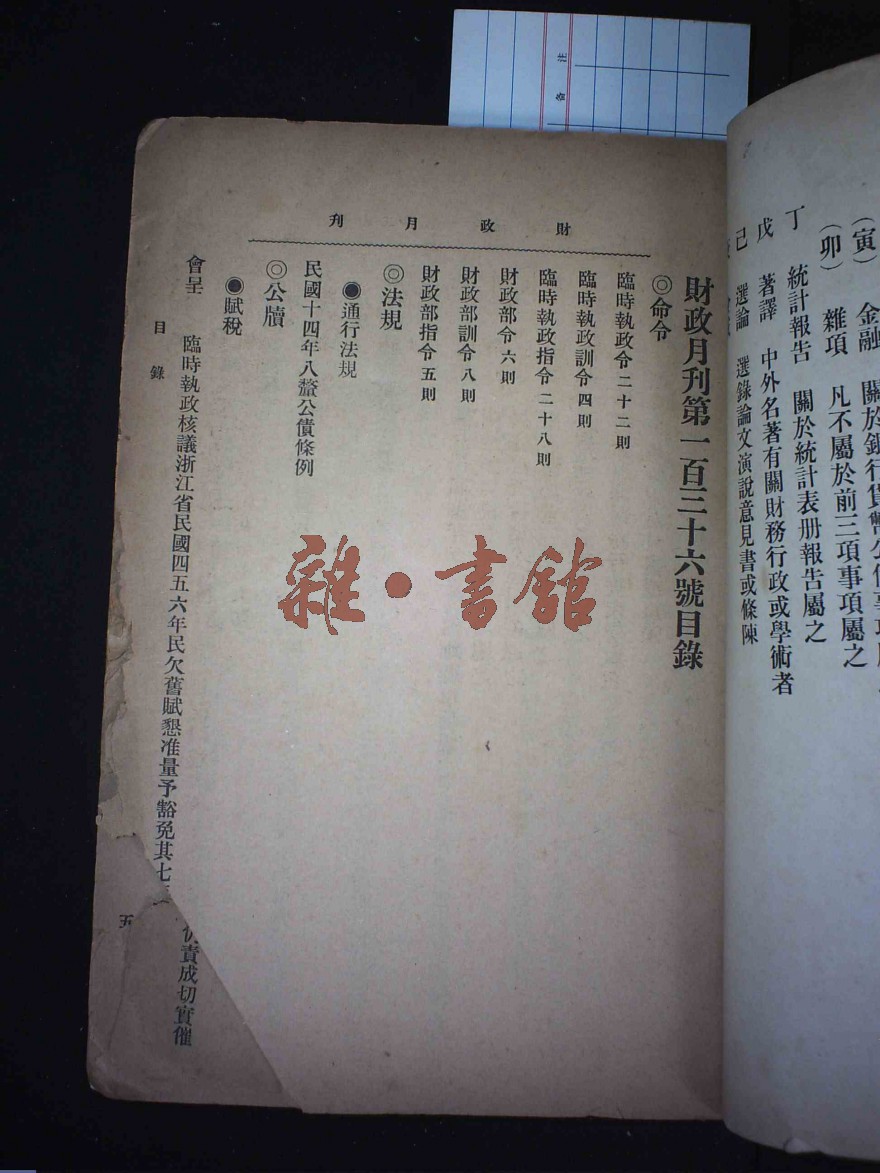 （寅） 金融 關於銀行貨幣公債事項
（卯） 雜項 凡不屬於前三項事項屬之
丁 統計報告 關於統計表册報告屬之
戊 著譯 中外名著有關財務行政或學術者
己 選論 選錄論文演說意見書或條陳
財政月刊
財政月刊第一百三十六號目錄
◎命令
臨時執政令二十二則
臨時執政訓令四則
臨時執政指令二十八則
財政部令六則
財政部訓令八則
財政部指令五則
◎法規
●通行法規
民國十四年八釐公債條例
◎公牘
●賦稅
會呈 臨時執政核議浙江省民國四五六年民欠舊賦懇准量予豁免其七 仍責成切實催
目錄
五
雜·書館
備 注